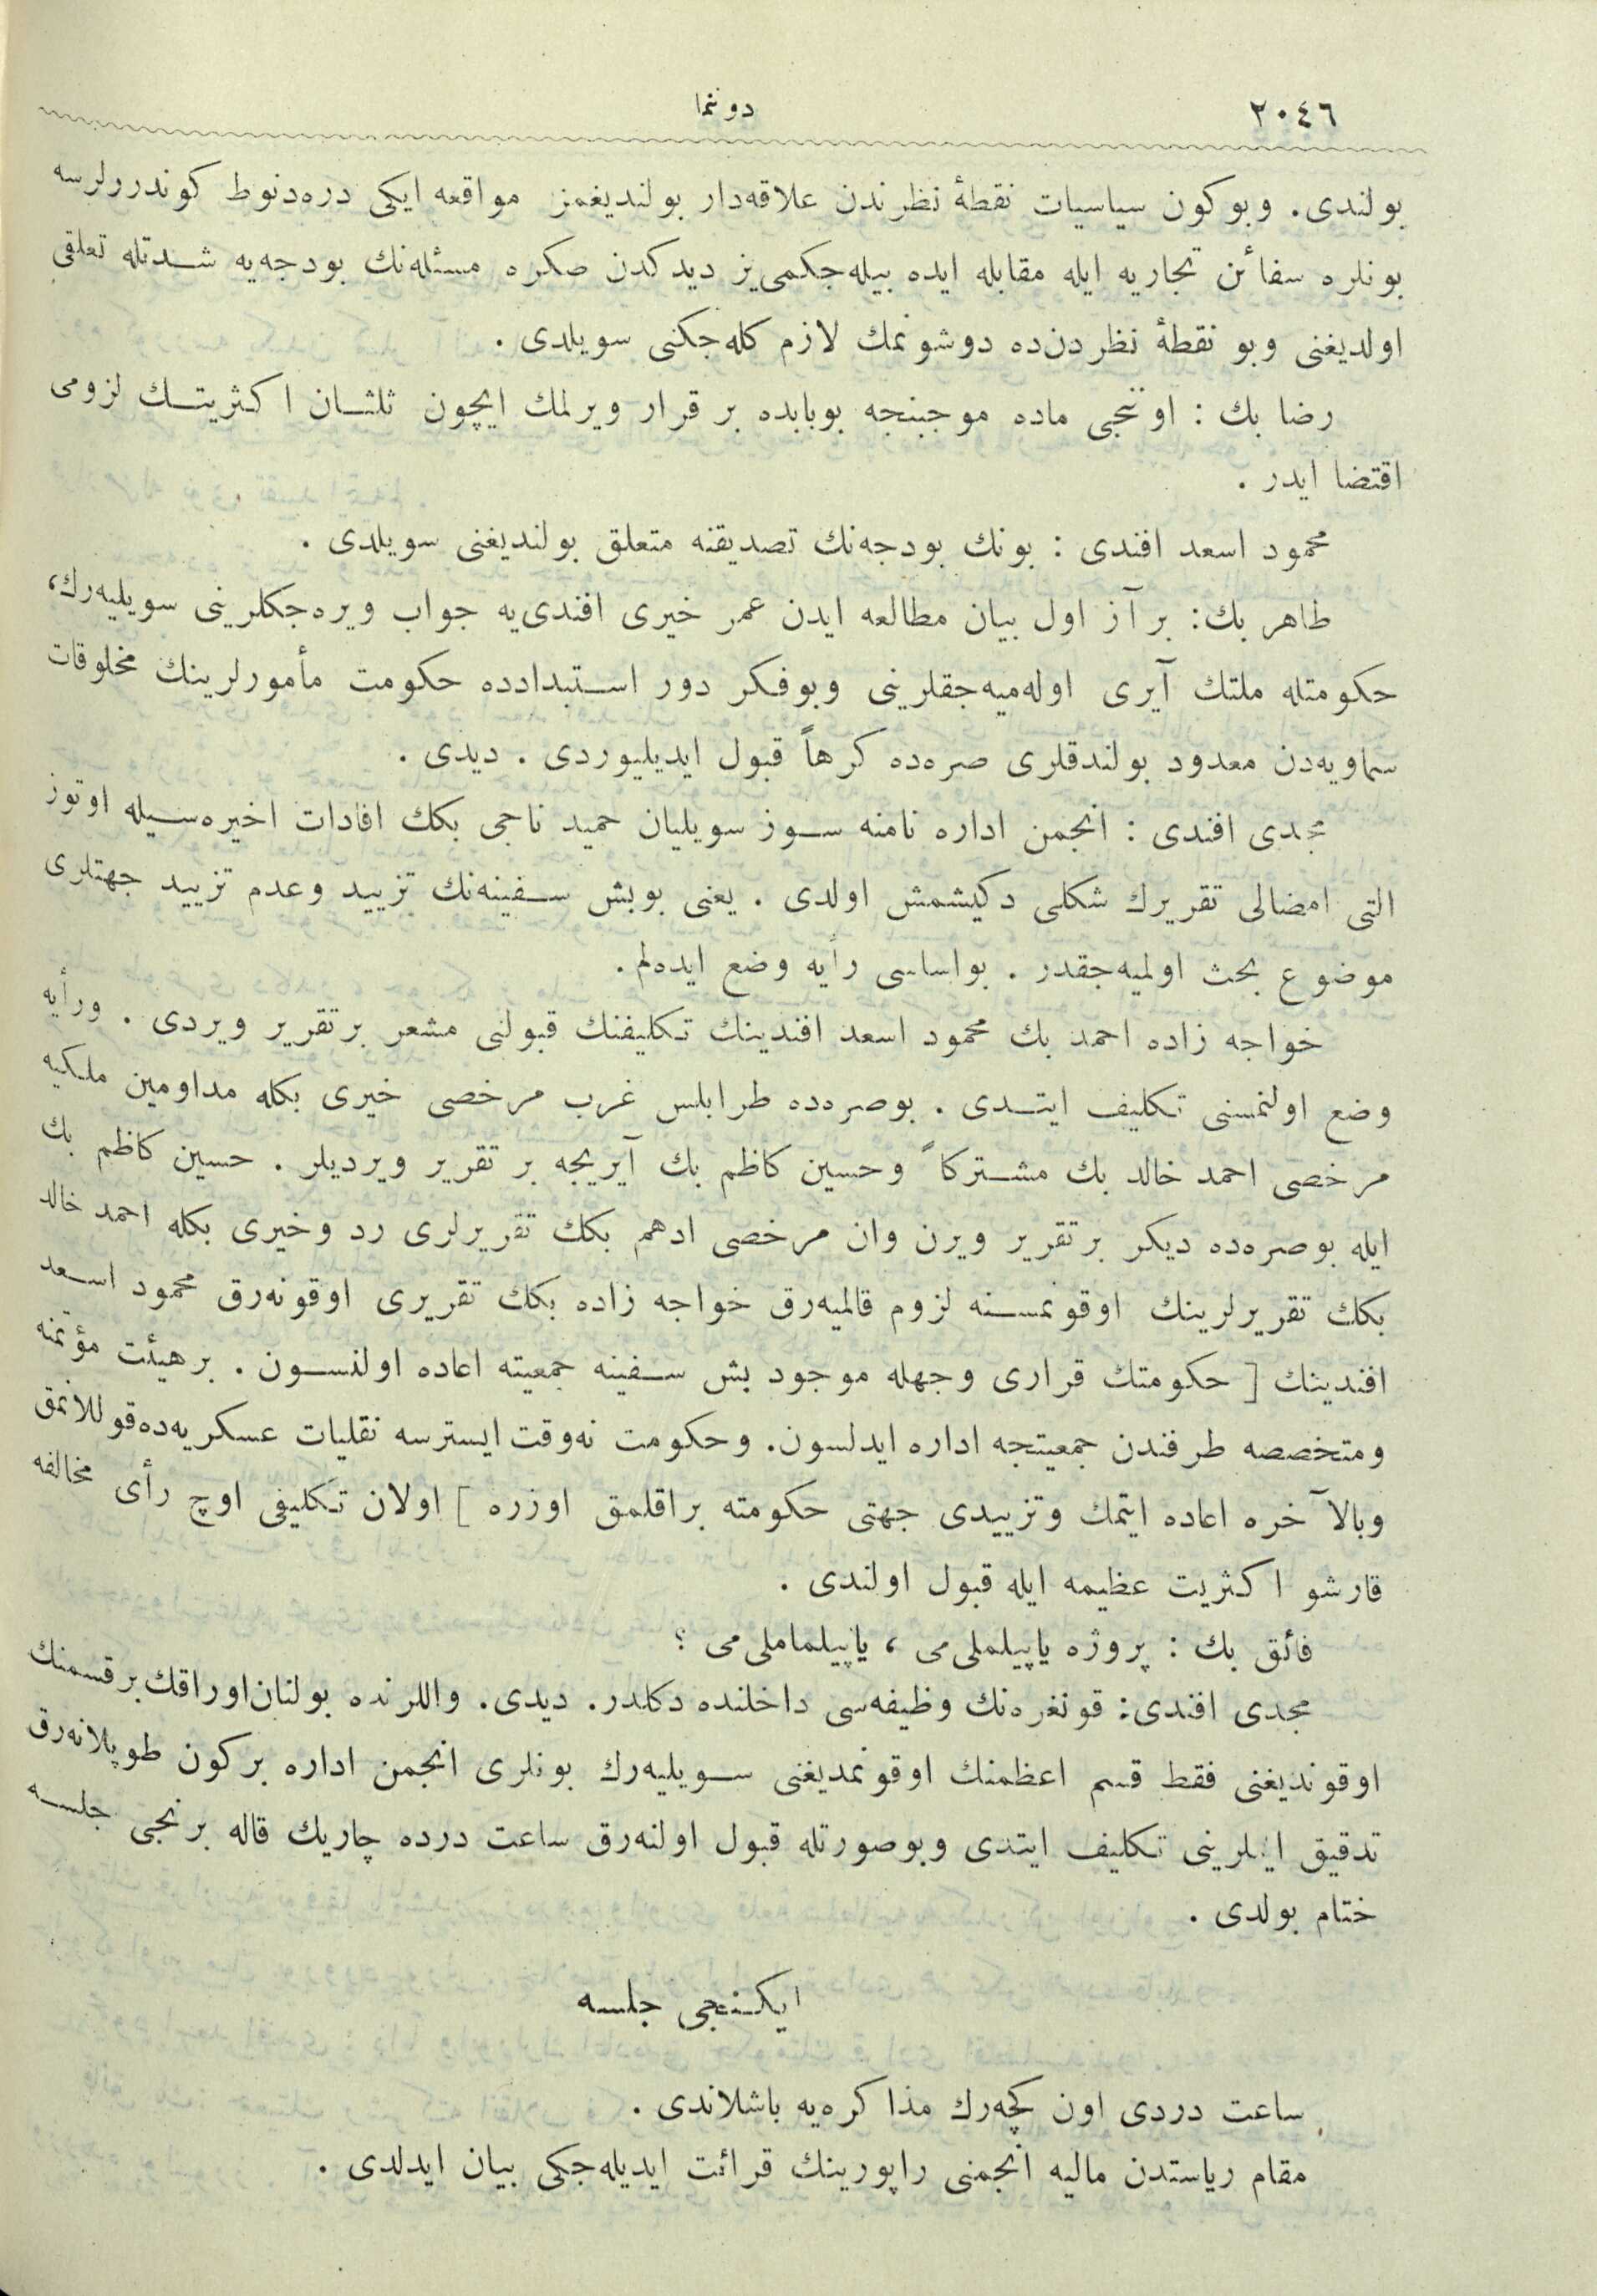 ٢٠٤٦
دوننما
بولندی. وبوکون سیاسیات نقطهٔ نظرندن علاقه‌دار بولندیغمز مواقعه ایکی دره‌دنوط کوندررلرسه
بونلره سفائن تجاریه ایله مقابله ایده بیله‌جکمی‌یز دیدکدن صکره مسئله‌نك بودجه‌یه شدتله تعلقی
اولدیغنی وبو نقطهٔ نظردن‌ده دوشونمك لازم کله‌جکنی سویلدی .
رضا بك : اوننجی ماده موجبنجه بوبابده بر قرار ویرلمك ایچون ثلثان اکثریتك لزومی
اقتضا ایدر .
محمود اسعد افندی : بونك بودجه‌نك تصدیقنه متعلق بولندیغنی سویلدی .
طاهر بك: بر آز اول بیان مطالعه ایدن عمر خیری افندی‌یه جواب ویره‌جکلرینی سویلیه‌رك،
حکومتله ملتك آیری اوله‌میه‌جقلرینی وبوفکر دور استبدادده حکومت مأمورلرینك مخلوقات
سماویه‌دن معدود بولندقلری صره‌ده کرهاً قبول ایدیلیوردی . دیدی .
مجدی افندی : انجمن اداره نامنه سوز سویلیان حمید ناجی بكك افادات اخیره‌سیله اوتوز
التی امضالی تقریرك شکلی دکیشمش اولدی . یعنی بوبش سفینه‌نك تزیید وعدم تزیید جهتلری
موضوع بحث اولمیه‌جقدر . بواساسی رأیه وضع ایده‌لم.
خواجه زاده احمد بك محمود اسعد افندینك تکلیفنك قبولنی مشعر برتقریر ویردی . ورأیه
وضع اولنمسنی تکلیف ایتدی . بوصره‌ده طرابلس غرب مرخصی خیری بكله مداومین ملکیه
مرخصی احمد خالد بك مشترکاً وحسین کاظم بك آیریجه بر تقریر ویردیلر . حسین کاظم بك
ایله بوصره‌ده دیکر برتقریر ویرن وان مرخصی ادهم بكك تقریرلری رد وخیری بكله احمد خالد
بكك تقریرلرینك اوقونمسنه لزوم قالمیه‌رق خواجه زاده بكك تقریری اوقونه‌رق محمود اسعد
افندینك [ حکومتك قراری وجهله موجود بش سفینه جمعیته اعاده اولنسون . برهیئت مؤتمنه
ومتخصصه طرفندن جمعیتجه اداره ایدلسون. وحکومت نه‌وقت ایسترسه نقلیات عسکریه‌ده‌قوللانمق
وبالآخره اعاده ایتمك وتزییدی جهتی حکومته براقلمق اوزره ] اولان تکلیفی اوچ رأی مخالفه
قارشو اکثریت عظیمه ایله قبول اولندی .
فائق بك : پروژه یاپیلملی‌می ، یاپیلماملی‌می ؟
مجدی افندی: قونغره‌نك وظیفه‌سی داخلنده دکلدر. دیدی. واللرنده بولنان‌اوراقك‌برقسمنك
اوقوندیغنی فقط قسم اعظمنك اوقونمدیغنی سویلیه‌رك بونلری انجمن اداره برکون طوپلانه‌رق
تدقیق ایتلرینی تکلیف ایتدی وبوصورتله قبول اولنه‌رق ساعت درده چاریك قاله برنجی جلسه
ختام بولدی .
ایکنجی جلسه
ساعت دردی اون کچه‌رك مذاکره‌یه باشلاندی .
مقام ریاستدن مالیه انجمنی راپورینك قرائت ایدیله‌جکی بیان ایدلدی .